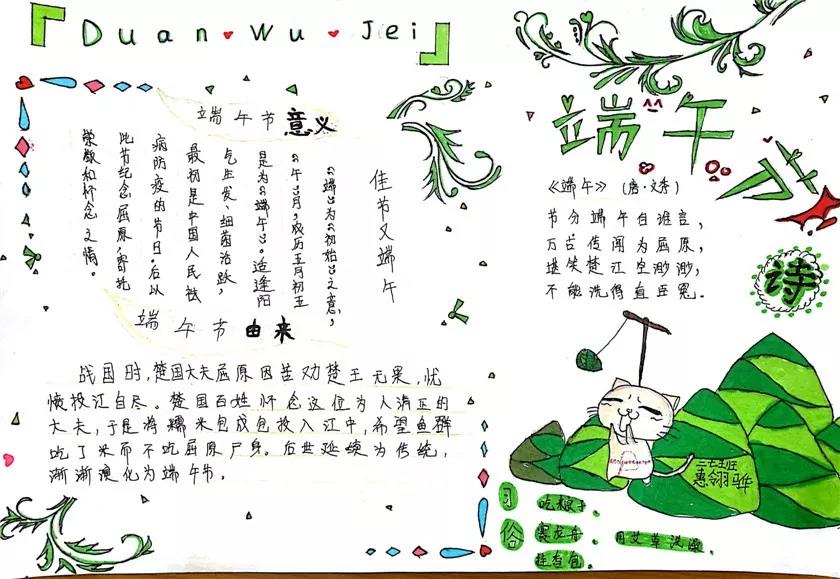 Duan Wu Jei
端午节意义
佳节又端午
《端》为《初始》之意,
《午》月,成历五月初五
是为《端午》。适逢阳
气生发、细菌治跃,
最初是中国人民祛
病防疫的节日。后以
此节纪念屈原,寄托
崇敬和怀念之情。
端午节由来
战国时,楚国大夫屈原因苦劝楚王无果,忧
愤投江自尽。楚国百姓怀念这位为人清正的
大夫,于是将糯米包成包投入江中,希望鱼群
吃了米而不吃屈原尸身。后世延续为传统,
渐渐演化为端午节。
端午
《端午》(唐·文秀)
节分端午自谁言,
万古传闻为屈原,
堪笑楚江空渺渺,
不能洗得直臣冤。
诗
惠翎骅
习俗
吃粽子、
赛龙舟、
挂香包、
用艾草洗澡.